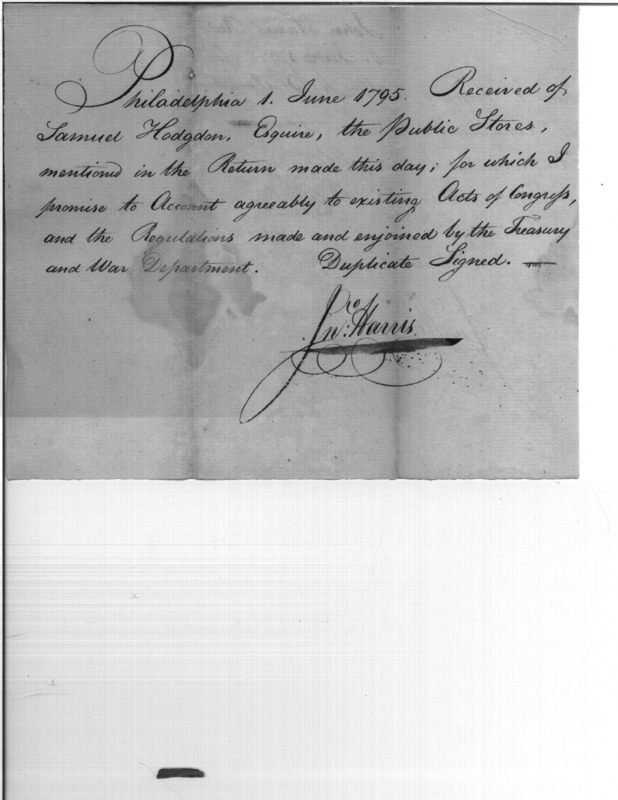 Philadelphia 1. June 1795. Received of
Samuel Hodgdon, Esquire, the Public Stores,
mentioned in the Return made this day; for which I
promise to Account agreeably to existing Acts of Congress,
and the Regulations made and enjoined by the Treasury
and War Department. Duplicate Signed. —
Jno: Harris.